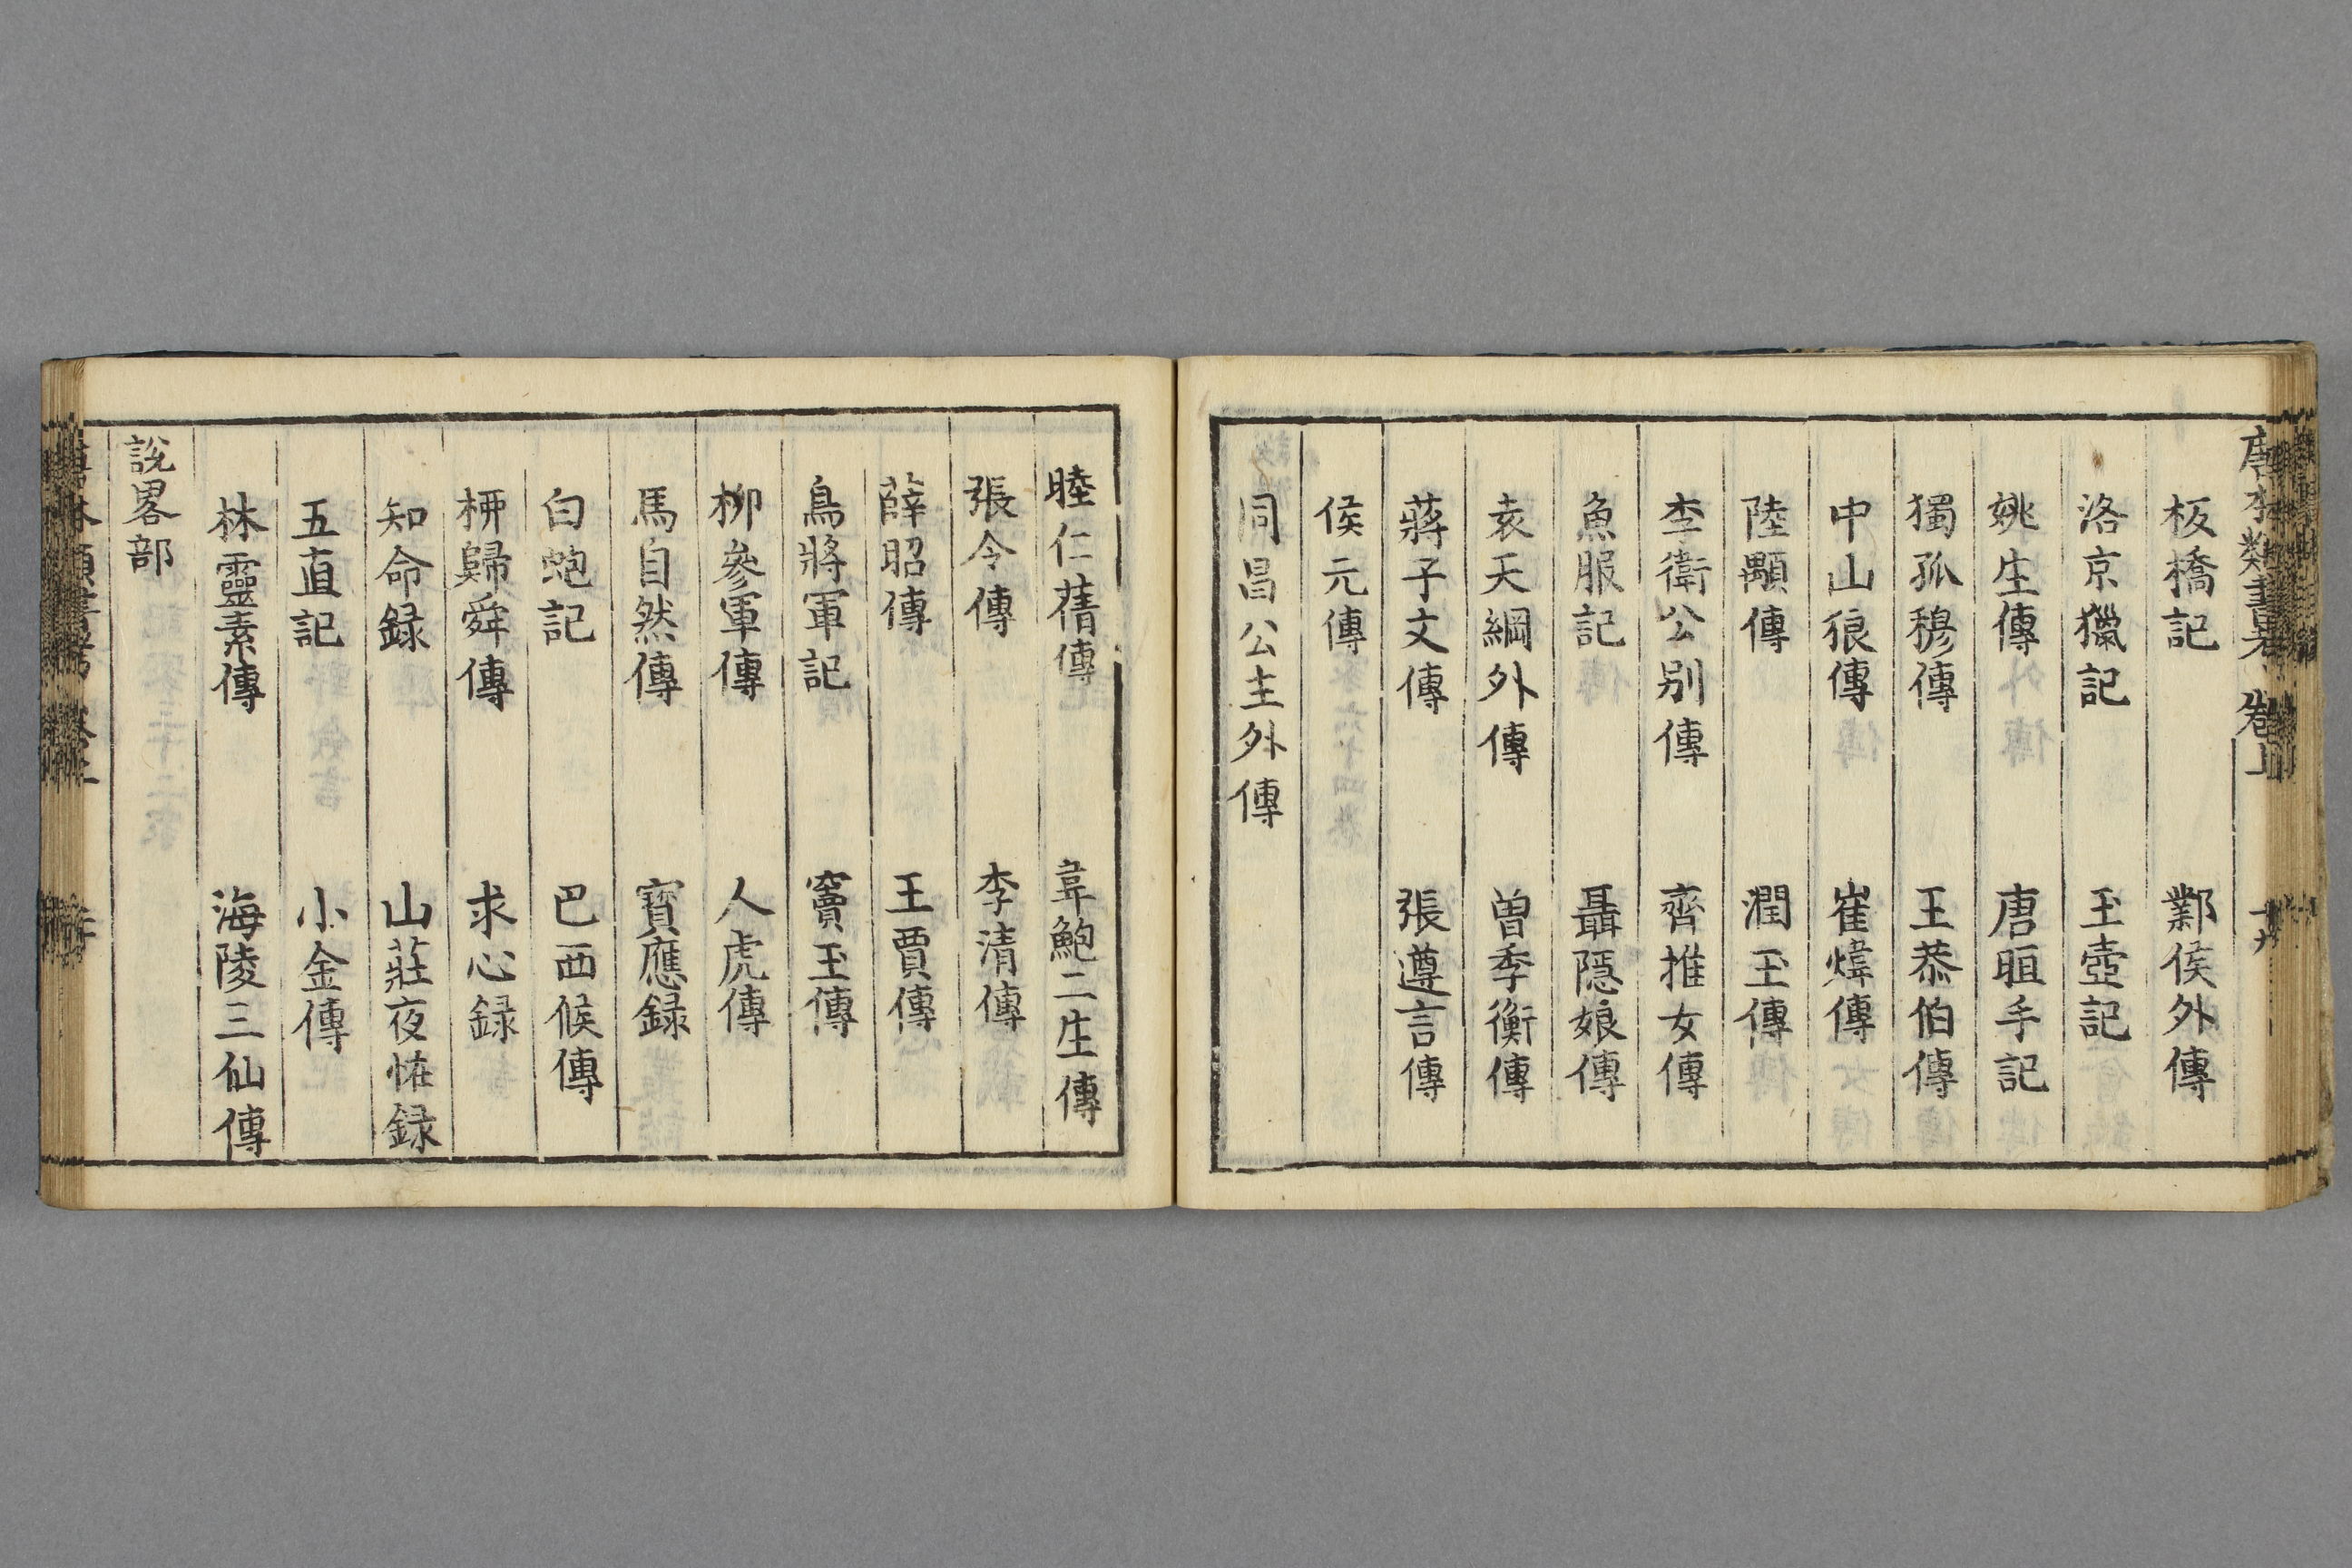 板橋記　鄴侯外傳
洛京獵記　玉壺記
姚生傳　唐晅手記
獨孤穆傳　王恭伯傳
中山狼傳　崔煒傳
陸顒傳　潤玉傳
李衛公别傳　齊推女傳
魚服記　聶隱娘傳
袁天綱外傳　曽季衡傳
蔣子文傳　張遵言傳
侯元傳
同昌公主外傳
睦仁蒨傳　韋鮑二生傳
張令傳　李清傳
薛昭傳　王賈傳
烏將軍記　竇玉傳
柳參軍傳　人虎傳
馬自然傳　寳應録
白蛇記　巴西候傳
柳歸舜傳　求心録
知命録　山莊夜恠録
五真記　小金傳
林靈素傳　海陵三仙傳
說畧部